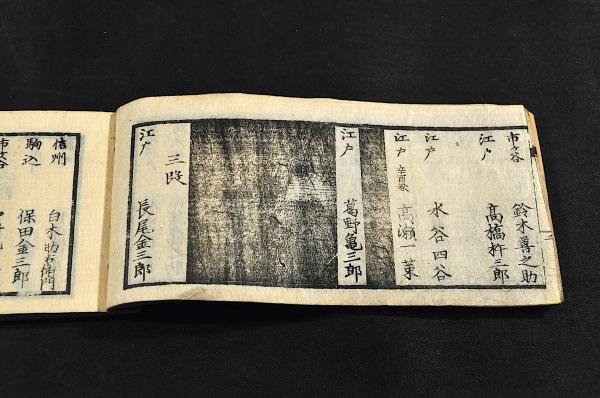 市ヶ谷 鈴木善之助
江戸 高橋杵三郎
江戸 水谷四谷
江戸 辛酉來 高瀬一菓
江戸 葛野亀三郎
三段
江戸 長尾金三郎
信州 白木助右衛門
駒込 保田金三郎
市ヶ谷